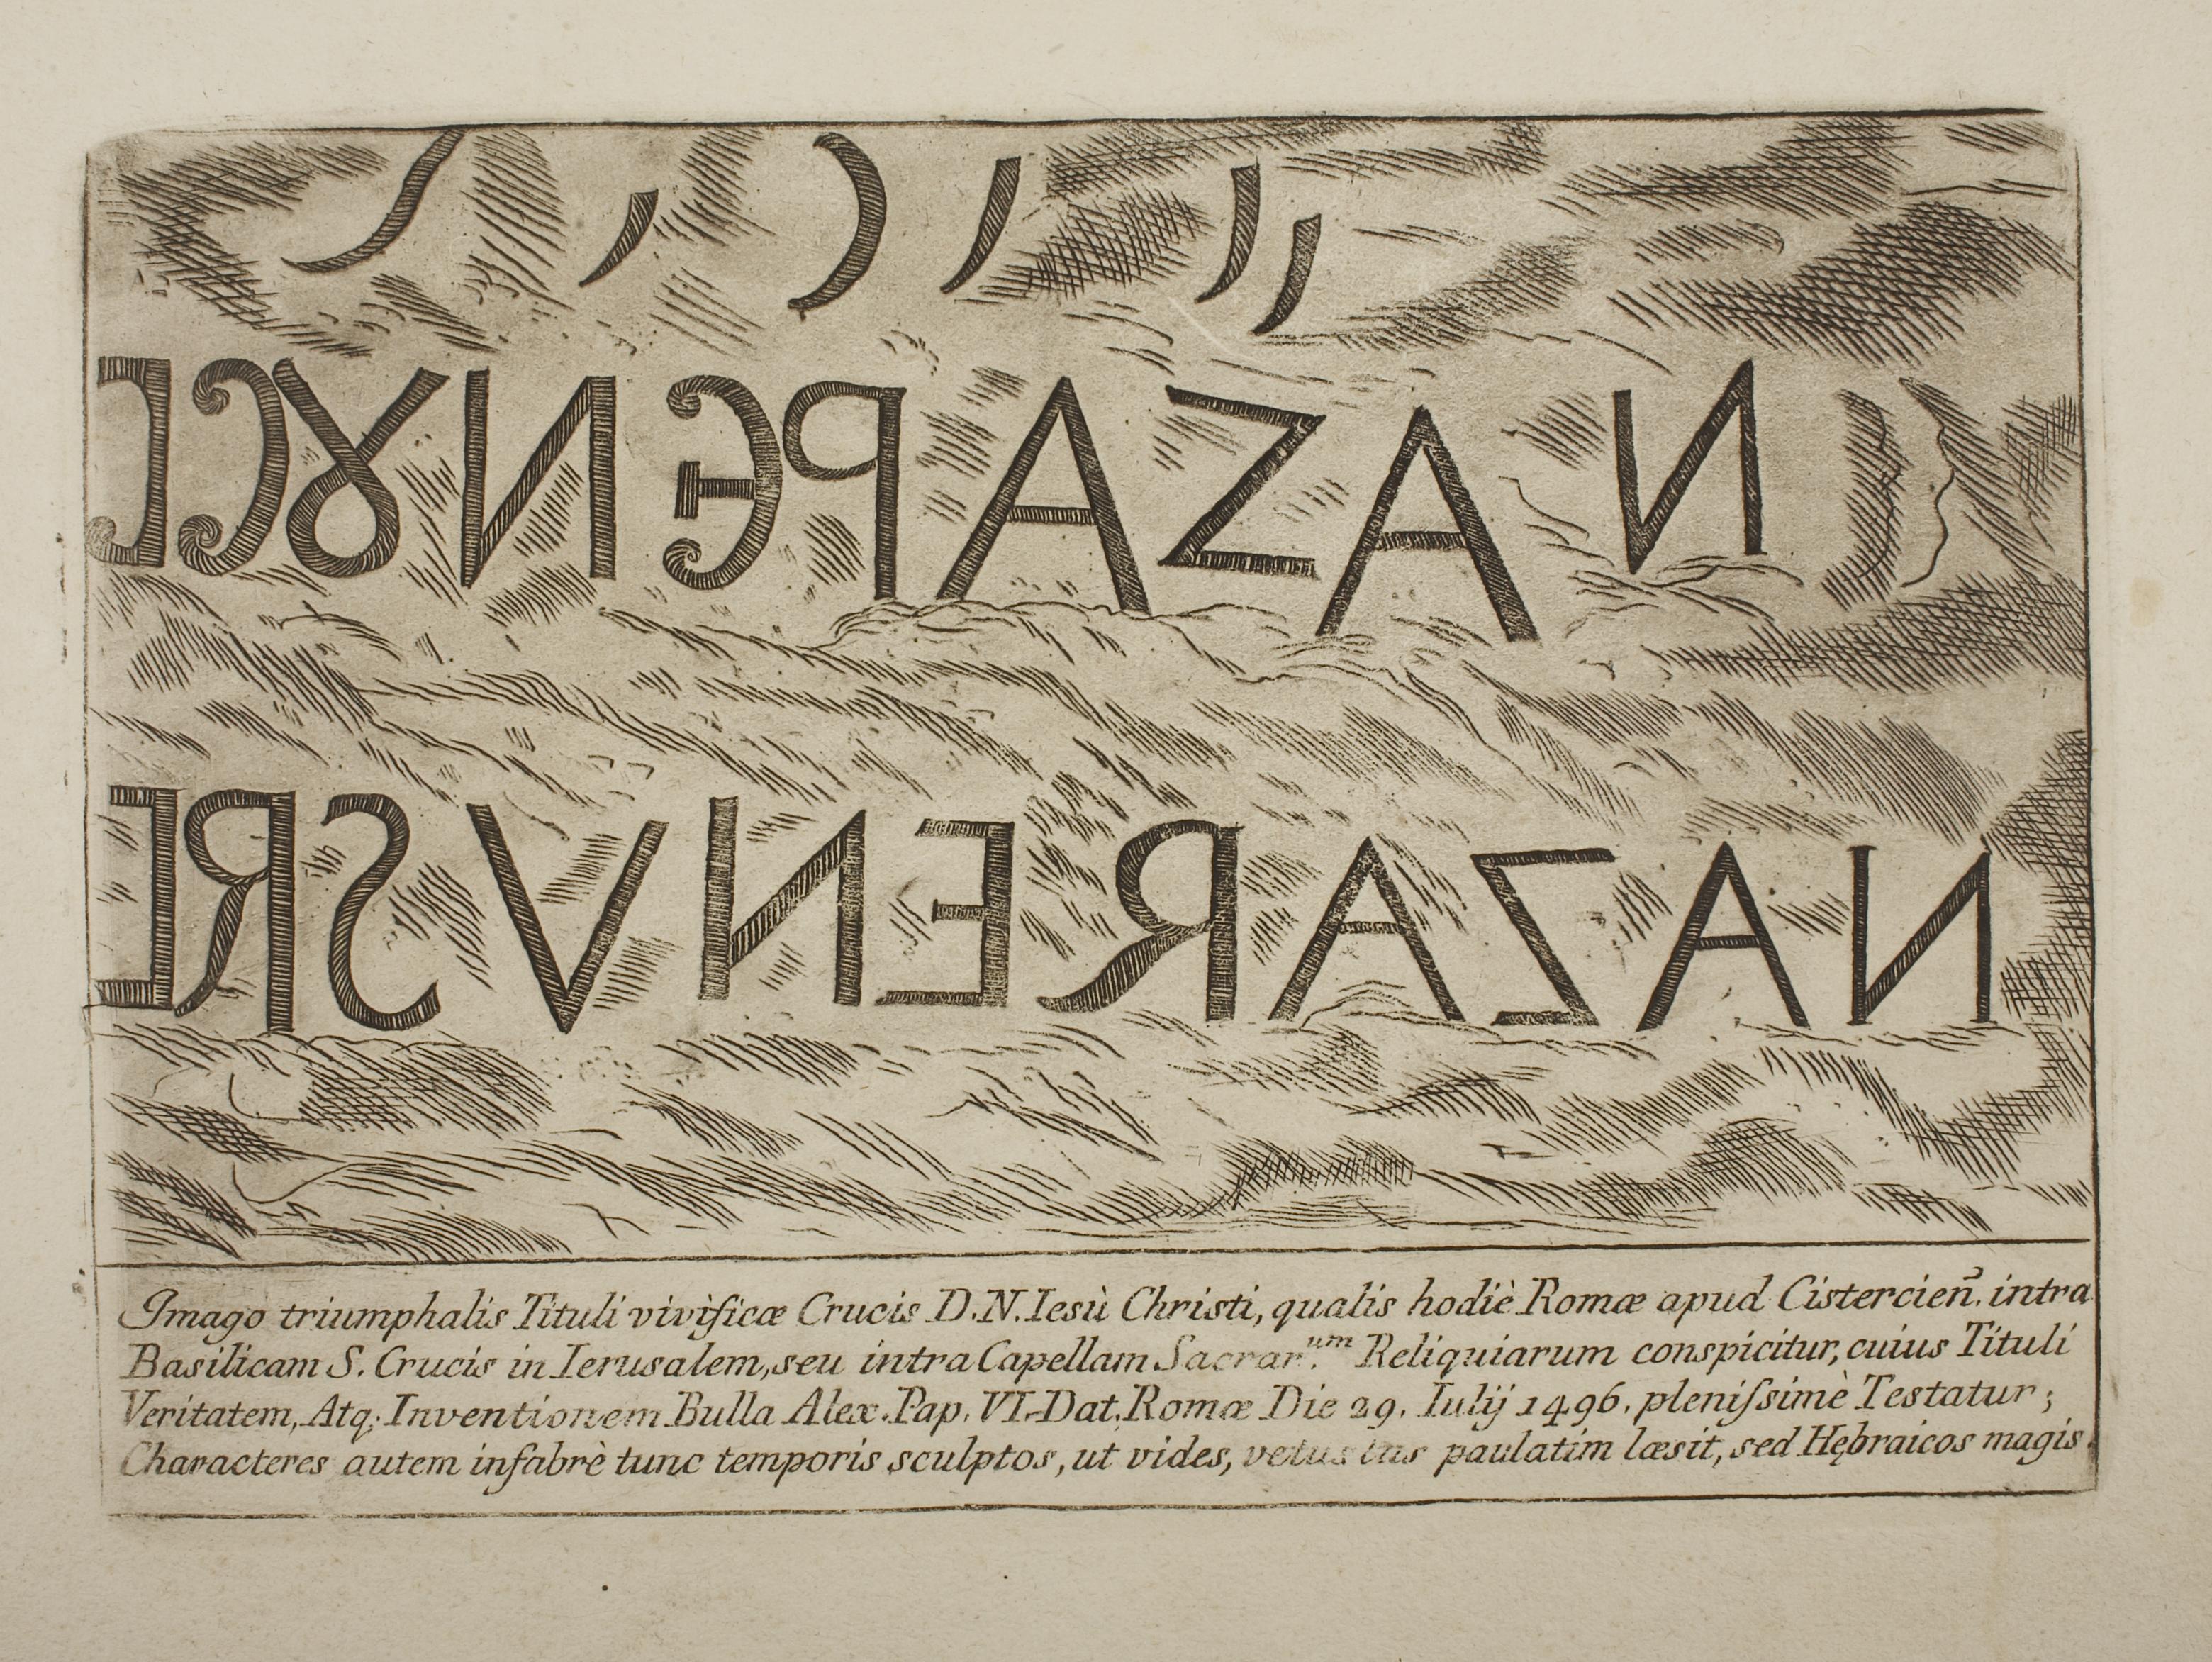 ΝΑΖΑΡЄΝȢϹ
NAZARENVSRE
Imago triumphalis Tituli vivificæ Crucis D.N. Iesù Christi, qualis hodiè Romæ apud Cistercien̄. intra
Basilicam S. Crucis in Ierusalem, seu intra Capellam Sacrar.um Reliquiarum conspicitur, cuius Tituli
Veritatem, Atq; Inventionem Bulla Alex. Pap. VI. Dat. Romæ Die 29. Iulij 1496. pleniſsimè Testatur;
Characteres autem infabrè tunc temporis sculptos, ut vides, vetustas paulatim læsit, sed Hębraicos magis.